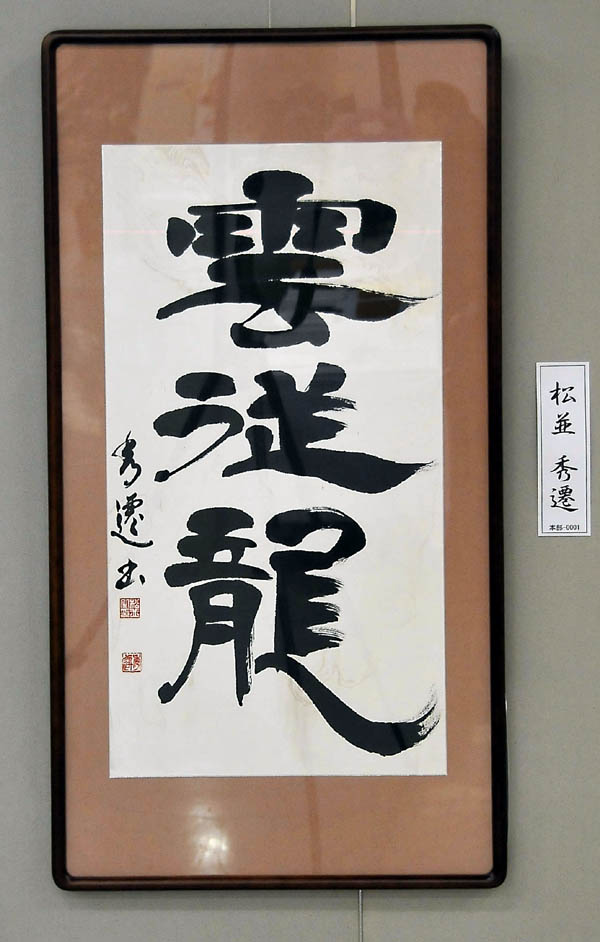 雲従龍
秀遷書
松並 秀遷
本部-0001